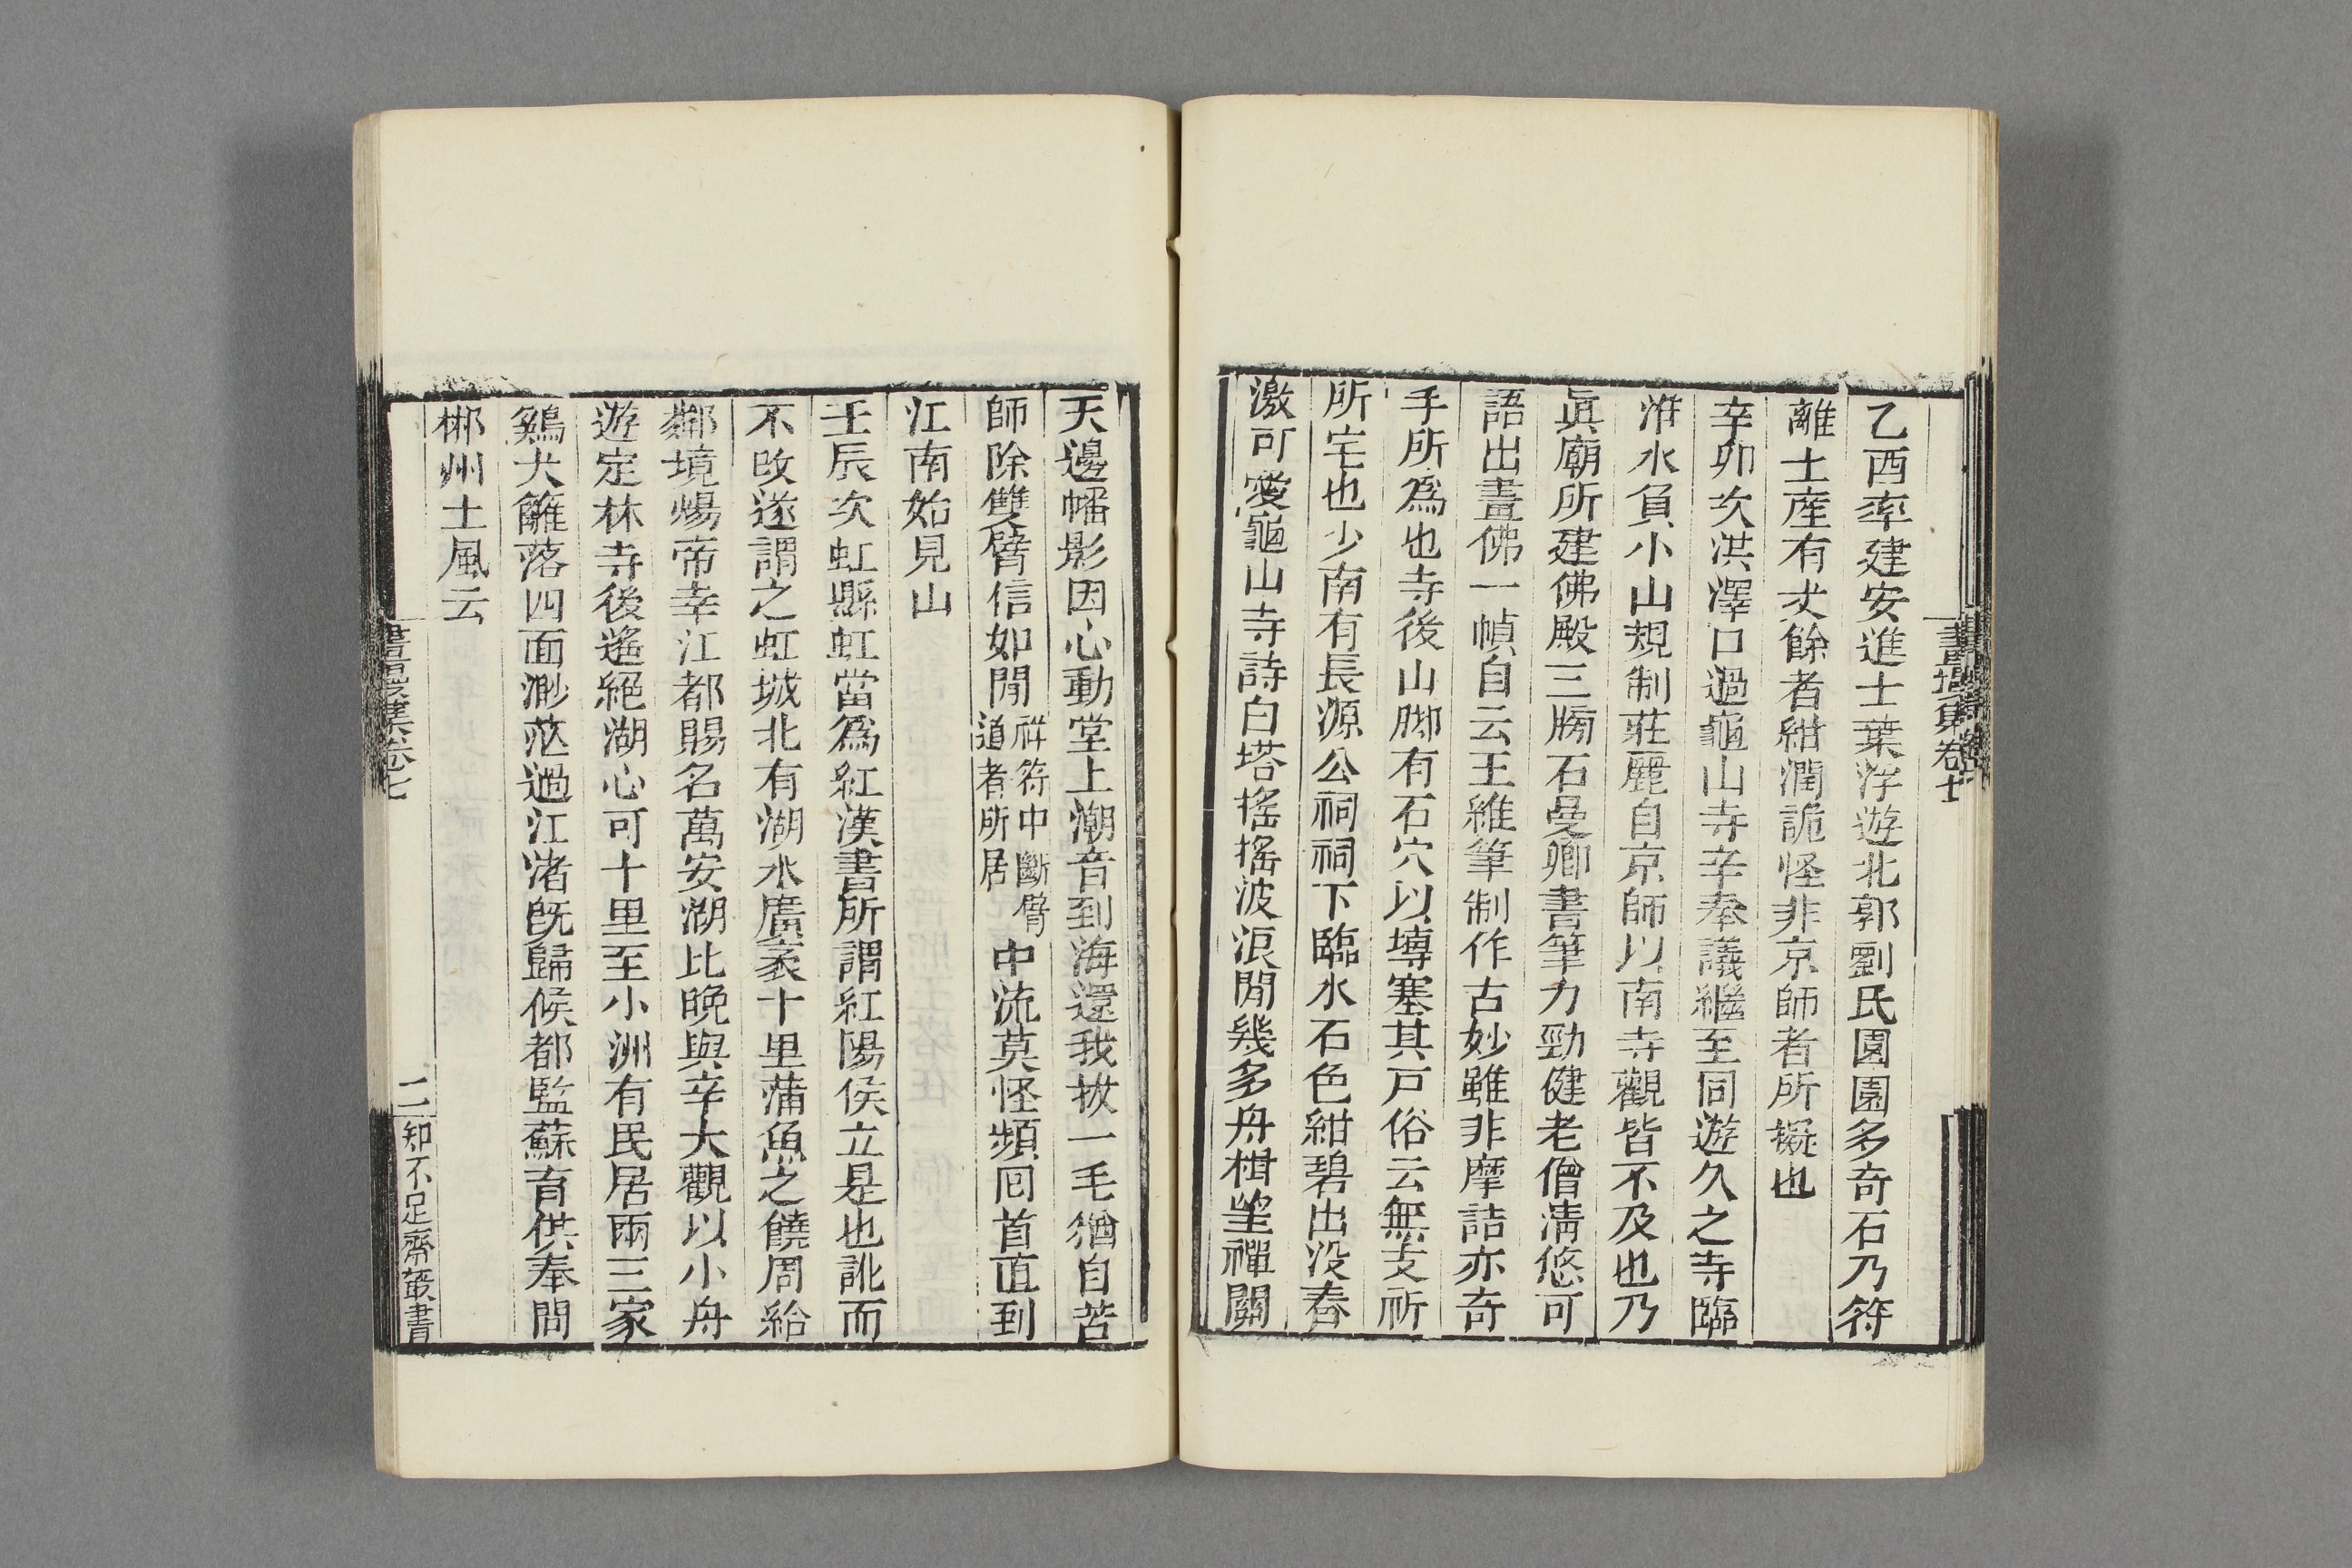 乙酉率建安進士葉浮遊北郭劉氏園園多奇石乃符
離土産有丈餘者紺潤詭怪非京師者所擬也
辛卯次洪澤口過龜山寺辛奉議繼至同遊久之寺臨
淮水負小山規制莊麗自京師以南寺觀皆不及也乃
眞廟所建佛殿三牓石曼卿書筆力勁健老僧淸悠可
語出畫佛一幀自云王維筆制作古妙雖非摩詰亦奇
手所爲也寺後山脚有石穴以塼塞其戸俗云無支祈
所宅也少南有長源公祠祠下臨水石色紺碧出没春
激可愛龜山寺詩白塔搖搖波浪閒幾多舟楫望禪關
天邊幡影因心動堂上潮音到海還我拔一毛猶自苦
師除雙臂信如閒祥符中斷臂道者所居中流莫怪頻囘首直到
江南始見山
壬辰次虹縣虹當爲紅漢書所謂紅陽侯立是也訛而
不改遂謂之虹城北有湖水廣袤十里蒲魚之饒周給
鄰境煬帝幸江都賜名萬安湖比晩與辛大觀以小舟
遊定林寺後遙絕湖心可十里至小洲有民居兩三家
鷄犬籬落四面渺茫過江渚旣歸候都監蘇育供奉問
郴州土風云
畫墁集卷七
二
知不足齋叢書